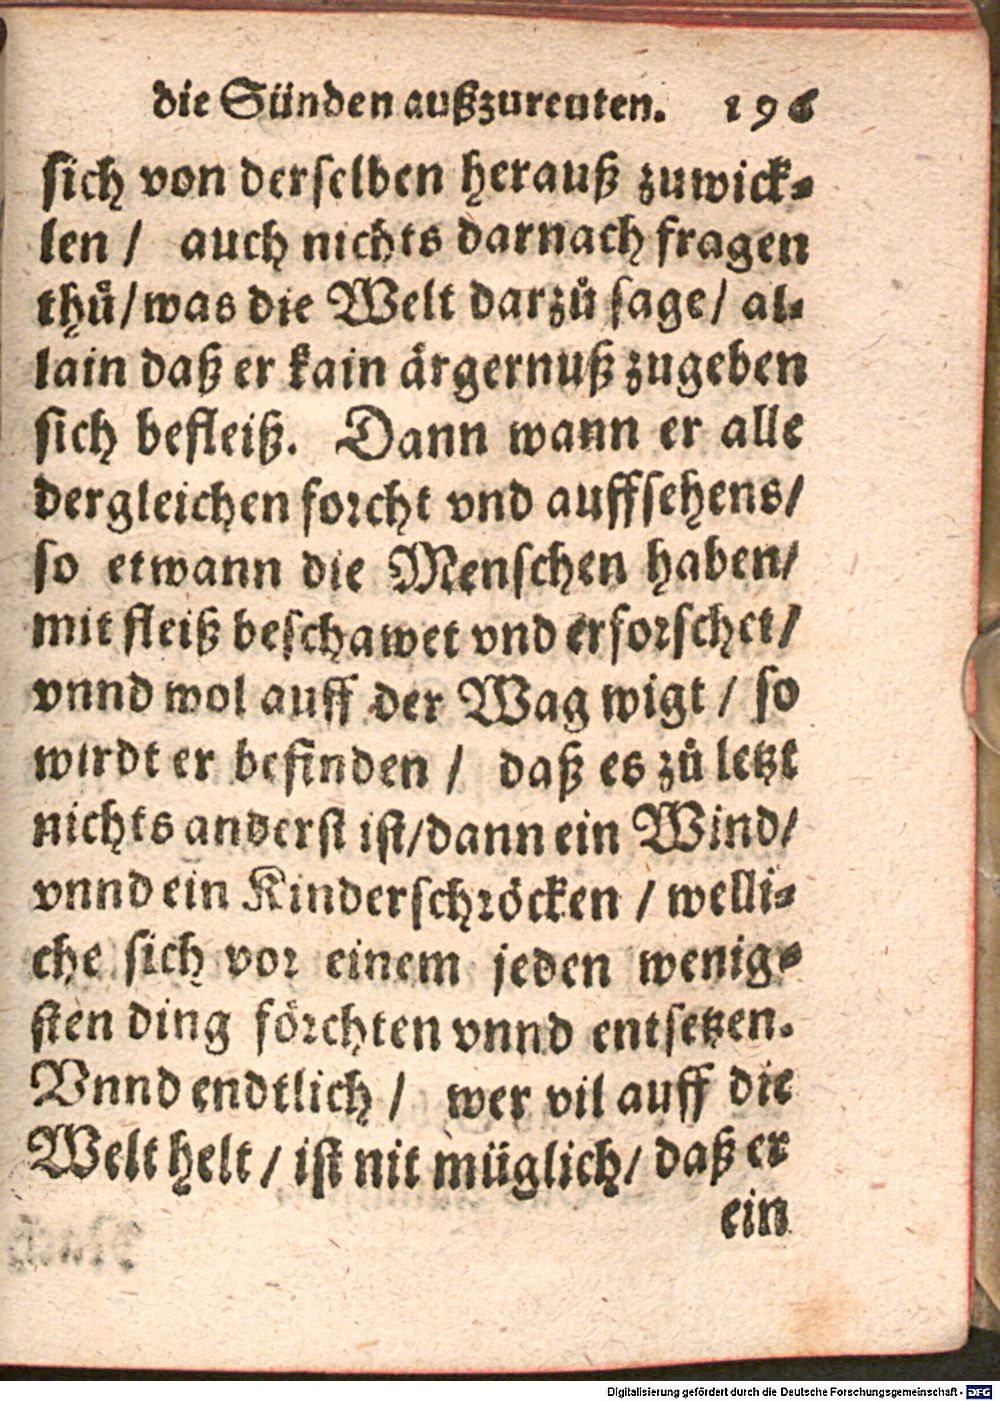 die Sünden außzureuten. 196
sich von derselben herauß zuwick-
len / auch nichts darnach fragen
thů/was die Welt darzů sage/ al-
lain daß er kain ärgernuß zugeben
sich befleiß. Dann wann er alle
dergleichen forcht vnd auffsehens/
so etwann die Menschen haben/
mit fleiß beschawet vnd erforschet/
vnnd wol auff der Wag wigt / so
wirdt er befinden / daß es zů letzt
nichts anderst ist/dann ein Wind/
vnnd ein Kinderschröcken / welli-
che sich vor einem jeden wenig-
sten ding förchten vnnd entsetzen.
Vnnd endtlich / wer vil auff die
Welt helt / ist nit müglich/ daß er
ein
Digitalisierung gefördert durch die Deutsche Forschungsgemeinschaft - DFG